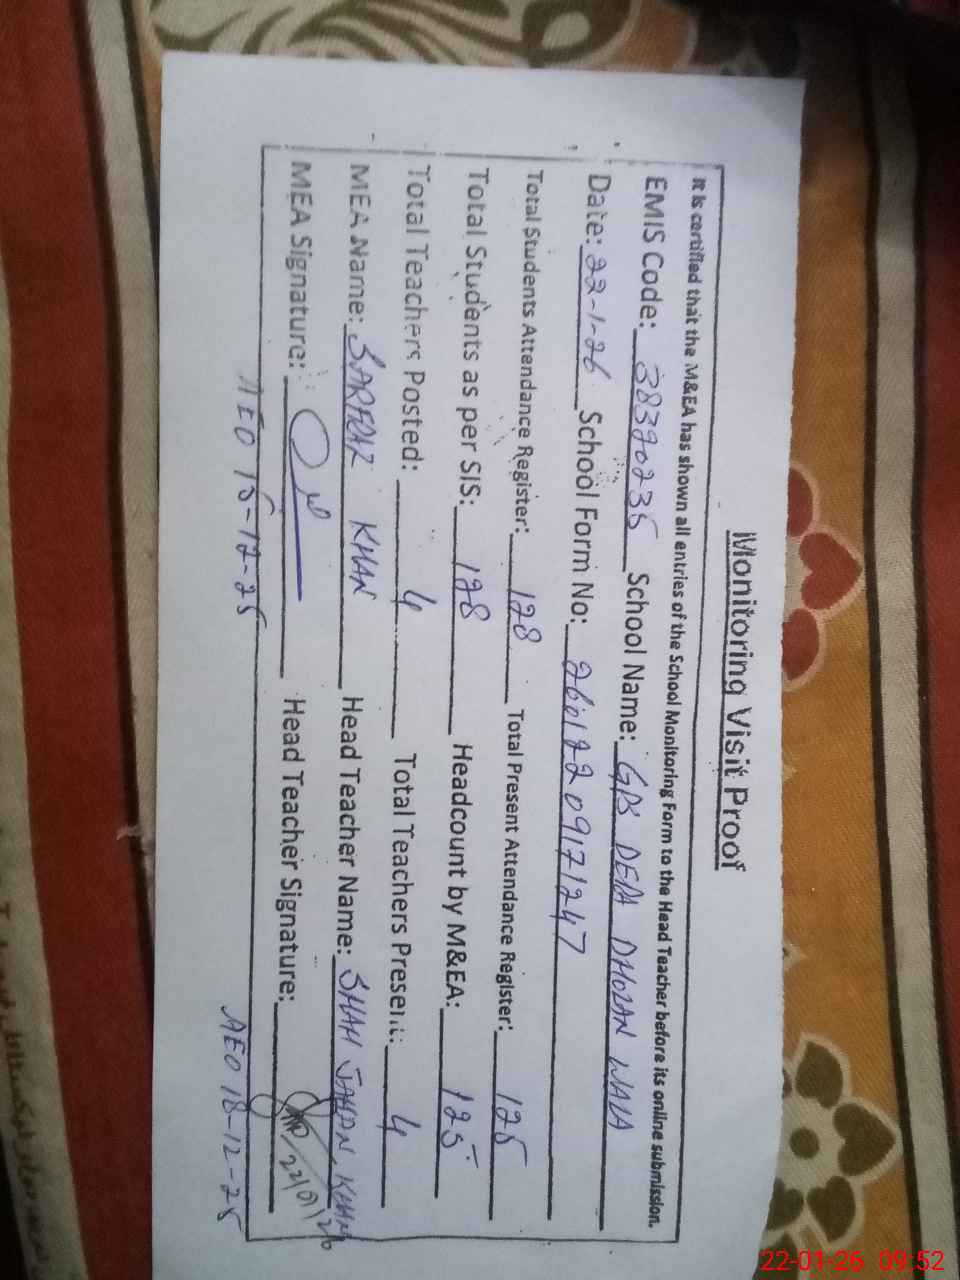 Monitoring Visit Proof
It is certified that the M&EA has shown all entries of the School Monitoring Form to the Head Teacher before its online submission.
EMIS Code: 38320235 School Name: GPS DERA DHOZAN WALA
Date: 22-1-26 School Form No: 260122091 71247
Total Students Attendance Register: 128 Total Present Attendance Register: 125
Total Students as per SIS: 128 Headcount by M&EA: 125
Total Teachers Posted: 4 Total Teachers Present: 4
MEA Name: SARFRAZ KHAN Head Teacher Name: SHAH JAHAN KHAN
MEA Signature: Head Teacher Signature: 22/01/26
AEO 15-12-25 AEO 18-12-25
22-01-26 09:52